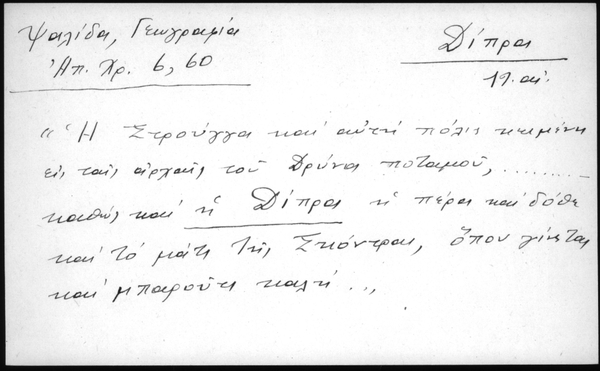 Ψαλίδα, Γεωγραφία
Ἠπ. Χρ. 6, 60
Δίπρα
19. αἰ.
"Ἡ Στρούγγα καὶ αὐτὴ πόλις κειμένη
εἰς ταῖς ἀρχαῖς τοῦ Δρύνα ποταμοῦ, .........
καθὼς καὶ ἡ Δίπρα ἡ πέρα καὶ δόθε
καὶ τὸ μάτι τῆς Σκόντρας, ὅπου γίνεται
καὶ μπαρούτι καλή...,,